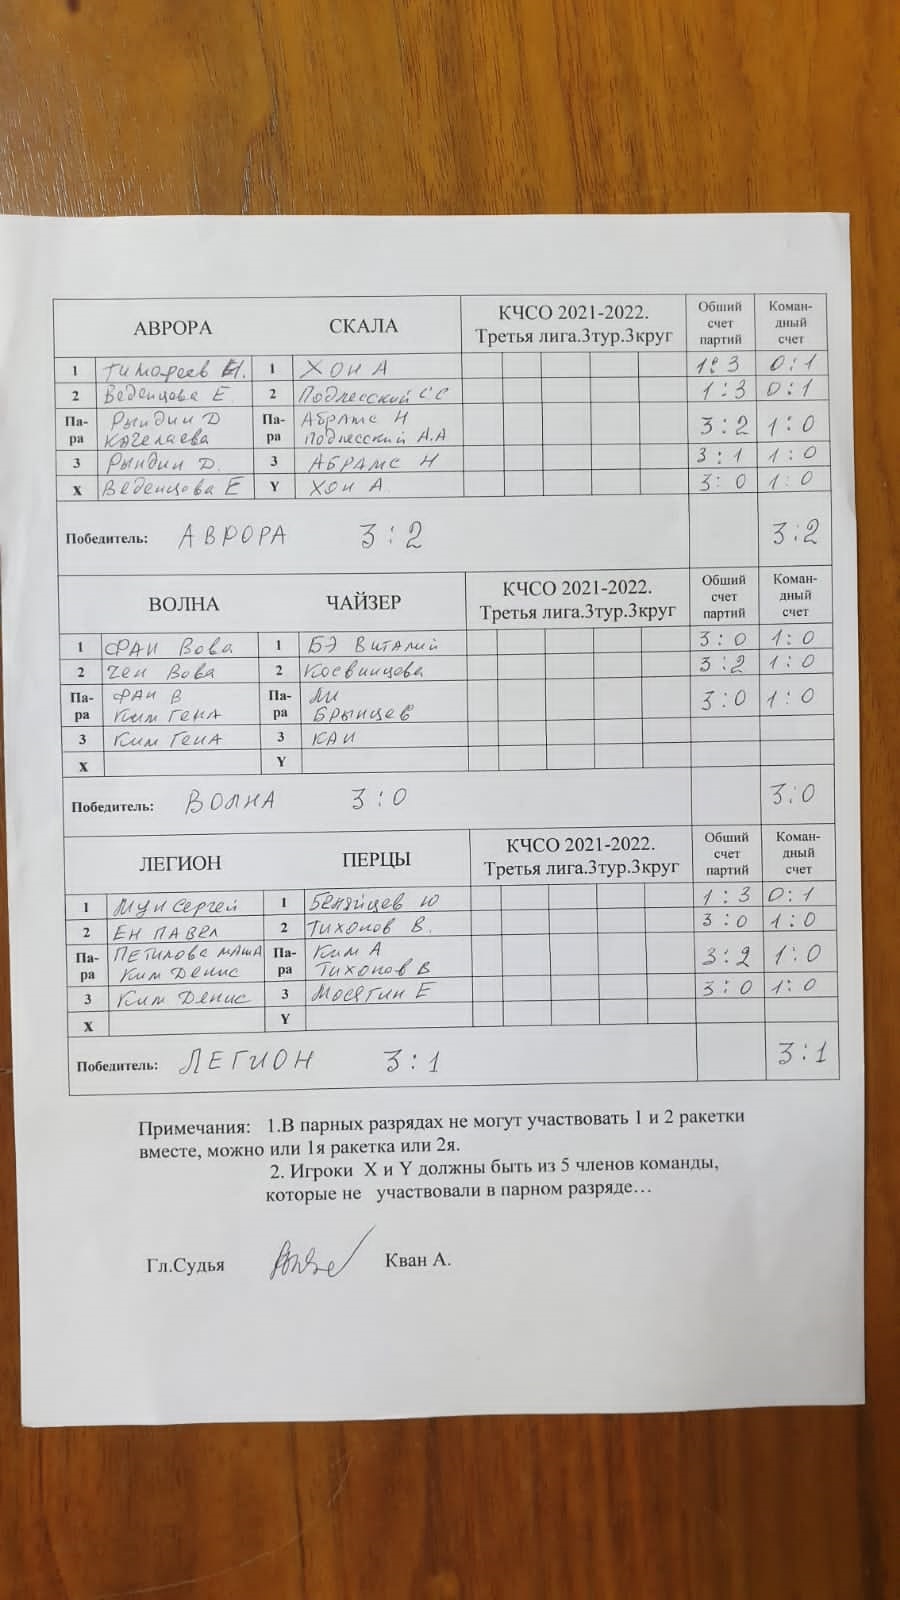 АВРОРА СКАЛА КЧСО 2021-2022. Третья лига.3тур.3круг Общий счет партий Коман-дный счет
1 Тимофеев 1 ХОН А 1:3 0:1
2 Веденцова Е 2 Подлесский СС 1:3 0:1
Па-ра Рындин Д Па-ра Абрамс Н 3:2 1:0
Кочелаева Подлесский А.А
3 Рындин Д. 3 АБРАМС Н 3:1 1:0
X Веденцова Е Y ХОН А 3:0 1:0
Победитель: АВРОРА 3:2 3:2
ВОЛНА ЧАЙЗЕР КЧСО 2021-2022. Третья лига.3тур.3круг Общий счет партий Коман-дный счет
1 ФАН Вова 1 БЭ Виталий 3:0 1:0
2 Чен Вова 2 Косвинцова 3:2 1:0
Па-ра ФАН В Па-ра Ли 3:0 1:0
Ким Гена Брынцев
3 Ким Гена 3 КАН
X Y
Победитель: ВОЛНА 3:0 3:0
ЛЕГИОН ПЕРЦЫ КЧСО 2021-2022. Третья лига.3тур.3круг Общий счет партий Коман-дный счет
1 Мун Сергей 1 Ю 1:3 0:1
2 ЕН ПАВЕЛ 2 Тихонов В. 3:0 1:0
Па-ра МАША Па-ра Ким А 3:2 1:0
Ким Денис Тихонов В
3 Ким Денис 3 Мосягин Е 3:0 1:0
X Y
Победитель: ЛЕГИОН 3:1 3:1
Примечания: 1.В парных разрядах не могут участвовать 1 и 2 ракетки
вместе, можно или 1я ракетка или 2я.
2. Игроки X и Y должны быть из 5 членов команды,
которые не участвовали в парном разряде…
Гл.Судья Кван А.